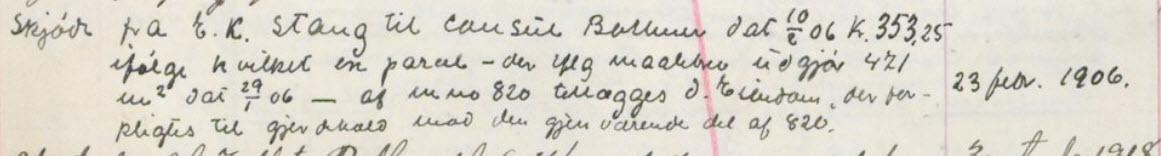 Skjöde fra E. K. Stang til Consul Bollmer dat 10/2 06 K. 353,25
ifølge hvilket en parcel - der iflg maalebrev udgjør 471
m² dat 29/1 06 — af m no 820 tillægges d. Eiendom, der for- 23 febr. 1906.
pligtes til gjerdehold mod den gjenværende del af 820.